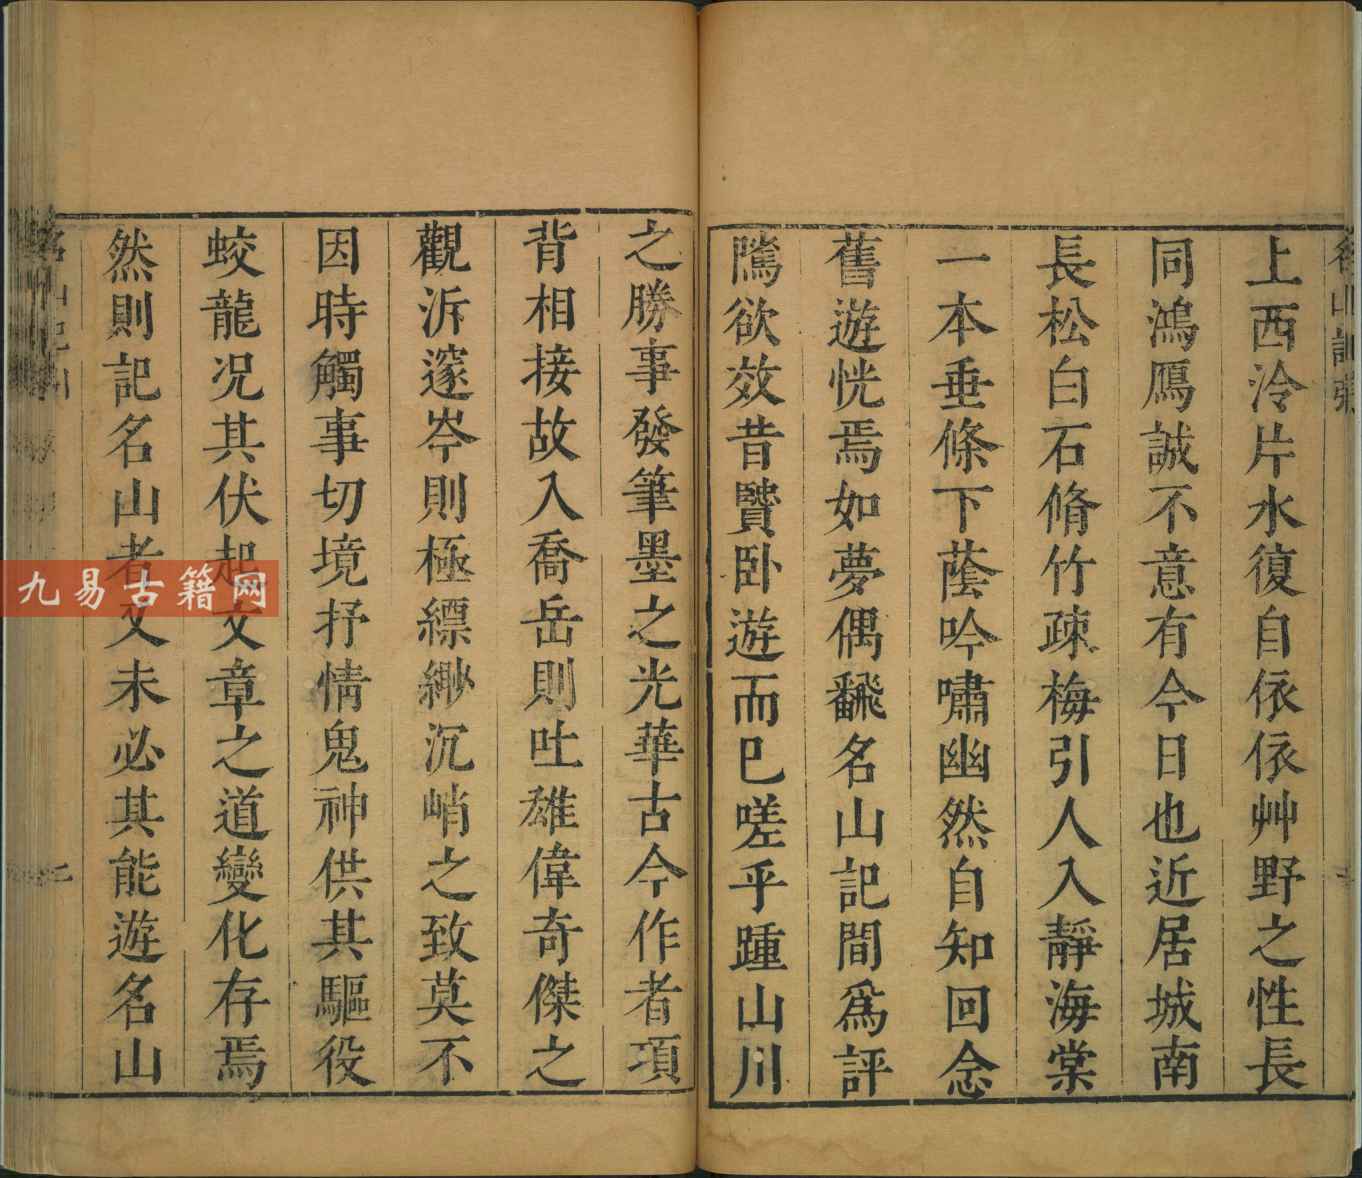 上西泠片水復自依依艸野之性長
同鴻鴈誠不意有今日也近居城南
長松白石脩竹疎梅引人入靜海棠
一本垂條下蔭吟嘯幽然自知回念
舊遊恍焉如夢偶飜名山記間爲評
隲欲效昔賢卧遊而已嗟乎踵山川
之勝事發筆墨之光華古今作者項
背相接故入喬岳則吐雄偉奇傑之
觀泝邃岺則極縹緲沉峭之致莫不
因時觸事切境抒情鬼神供其驅役
蛟龍况其伏起文章之道變化存焉
然則記名山者又未必其能遊名山
九易古籍网